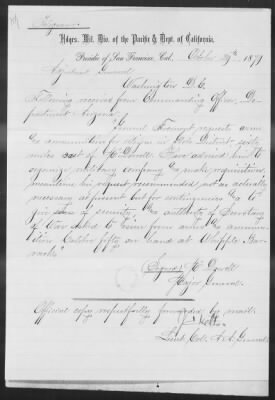 Telegram.
Hdqrs. Mil. Div. of the Pacific & Dept. of California.
Presidio of San Francisco, Cal., October 29th 1879
Adjutant General
Washington D.C.
Following received from Commanding Officer, De-
partment Arizona
"General Fremont requests arms
and ammunition for in District sixty
miles east of McDowell. Have advised him to
organize military company & make requisition,
meantime his request recommended not as actually
necessary at present but for
give of security. authority of Secretary
of War asked to issue from arms & ammu-
nition Calibre fifty on hand at Whipple Bar-
racks"
(Signed) McDowell
Major General.
Official copy respectfully forwarded by mail.
Lieut. Col. A.A. General.